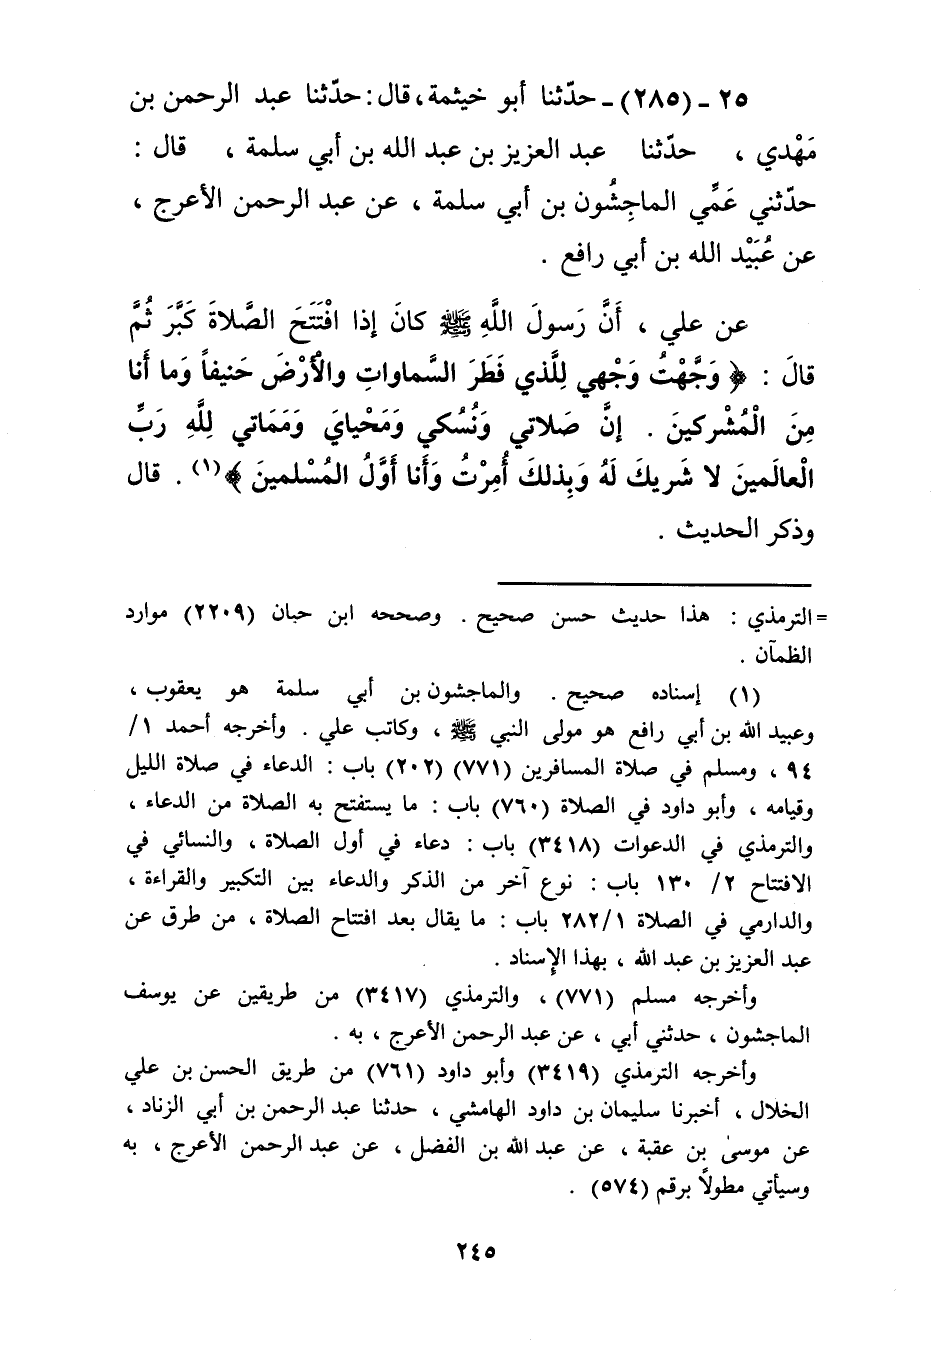 ٢٥ ـ (٢٨٥) ـ حدّثنا أبو خيثمة، قال: حدّثنا عبد الرحمن بن
مَهْدي ، حدّثنا عبد العزيز بن عبد الله بن أبي سلمة ، قال :
حدّثني عَمِّي الماجِشُون بن أبي سلمة ، عن عبد الرحمن الأعرج ،
عن عُبَيْد الله بن أبي رافع .
عن علي ، أَنَّ رَسولَ اللَّهِ ﷺ كانَ إذا افْتَتَحَ الصَّلاةَ كَبَّرَ ثُمَّ
قالَ : ﴿ وَجَّهْتُ وَجْهي لِلَّذي فَطَرَ السَّماواتِ والْأَرْضَ حَنيفاً وَما أَنا
مِنَ الْمُشْركينَ . إنَّ صَلاتي وَنُسُكي وَمَحْيايَ وَمَمَاتي لِلَّهِ رَبِّ
الْعالَمينَ لا شَريكَ لَهُ وَبِذلكَ أُمِرْتُ وَأَنا أَوَّلُ المُسْلمينَ ﴾(١) . قال
وذكر الحديث .
= الترمذي : هذا حديث حسن صحيح . وصححه ابن حبان (٢٢٠٩) موارد
الظمآن .
(١) إسناده صحيح . والماجشون بن أبي سلمة هو يعقوب ،
وعبيد الله بن أبي رافع هو مولى النبي ﷺ ، وكاتب علي . وأخرجه أحمد ١/
٩٤ ، ومسلم في صلاة المسافرين (٧٧١) (٢٠٢) باب : الدعاء في صلاة الليل
وقيامه ، وأبو داود في الصلاة (٧٦٠) باب : ما يستفتح به الصلاة من الدعاء ،
والترمذي في الدعوات (٣٤١٨) باب : دعاء في أول الصلاة ، والنسائي في
الافتتاح ٢/ ١٣٠ باب : نوع آخر من الذكر والدعاء بين التكبير والقراءة ،
والدارمي في الصلاة ٢٨٢/١ باب : ما يقال بعد افتتاح الصلاة ، من طرق عن
عبد العزيز بن عبد الله ، بهذا الإسناد .
وأخرجه مسلم (٧٧١) ، والترمذي (٣٤١٧) من طريقين عن يوسف
الماجشون ، حدثني أبي ، عن عبد الرحمن الأعرج ، به .
وأخرجه الترمذي (٣٤١٩) وأبو داود (٧٦١) من طريق الحسن بن علي
الخلال ، أخبرنا سليمان بن داود الهامشي ، حدثنا عبد الرحمن بن أبي الزناد ،
عن موسىٰ بن عقبة ، عن عبد الله بن الفضل ، عن عبد الرحمن الأعرج ، به
وسيأتي مطولاً برقم (٥٧٤) .
٢٤٥